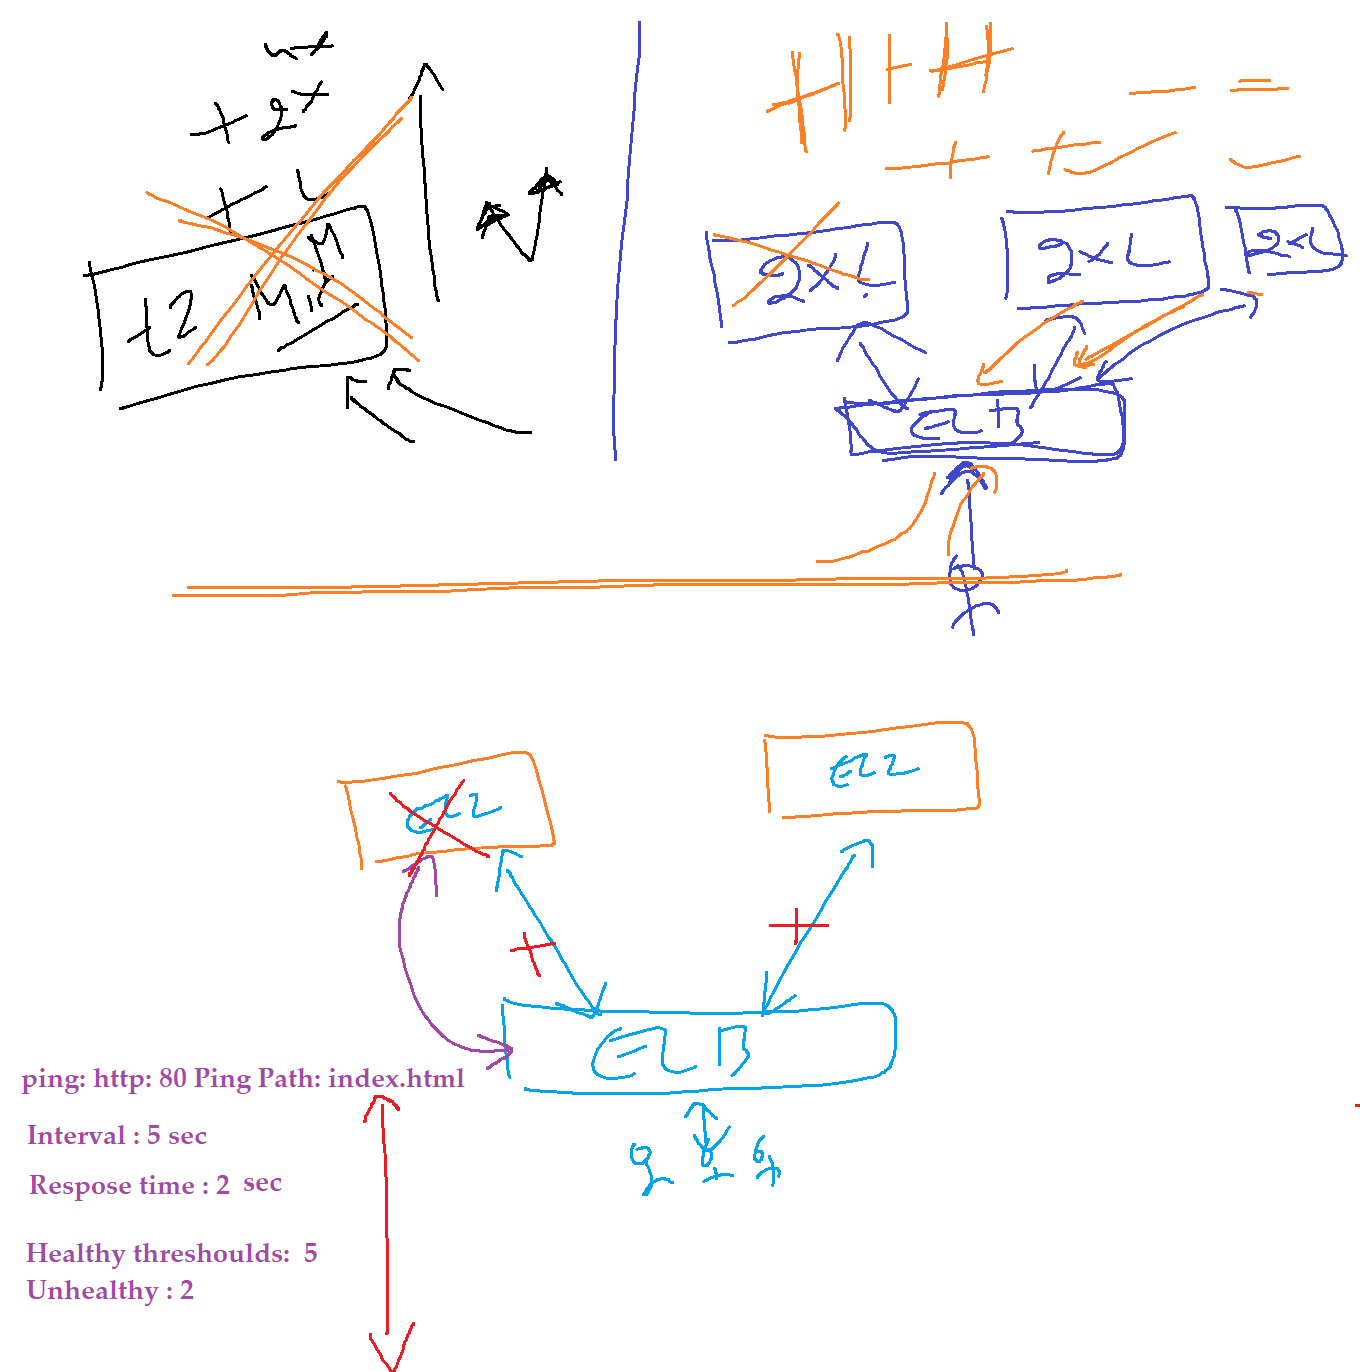 + 2x
+ L
t2 M
2x L
2xL
2xL
ELB
EC2
EC2
ELB
ping: http: 80 Ping Path: index.html
Interval : 5 sec
Respose time : 2 sec
Healthy threshoulds: 5
Unhealthy : 2